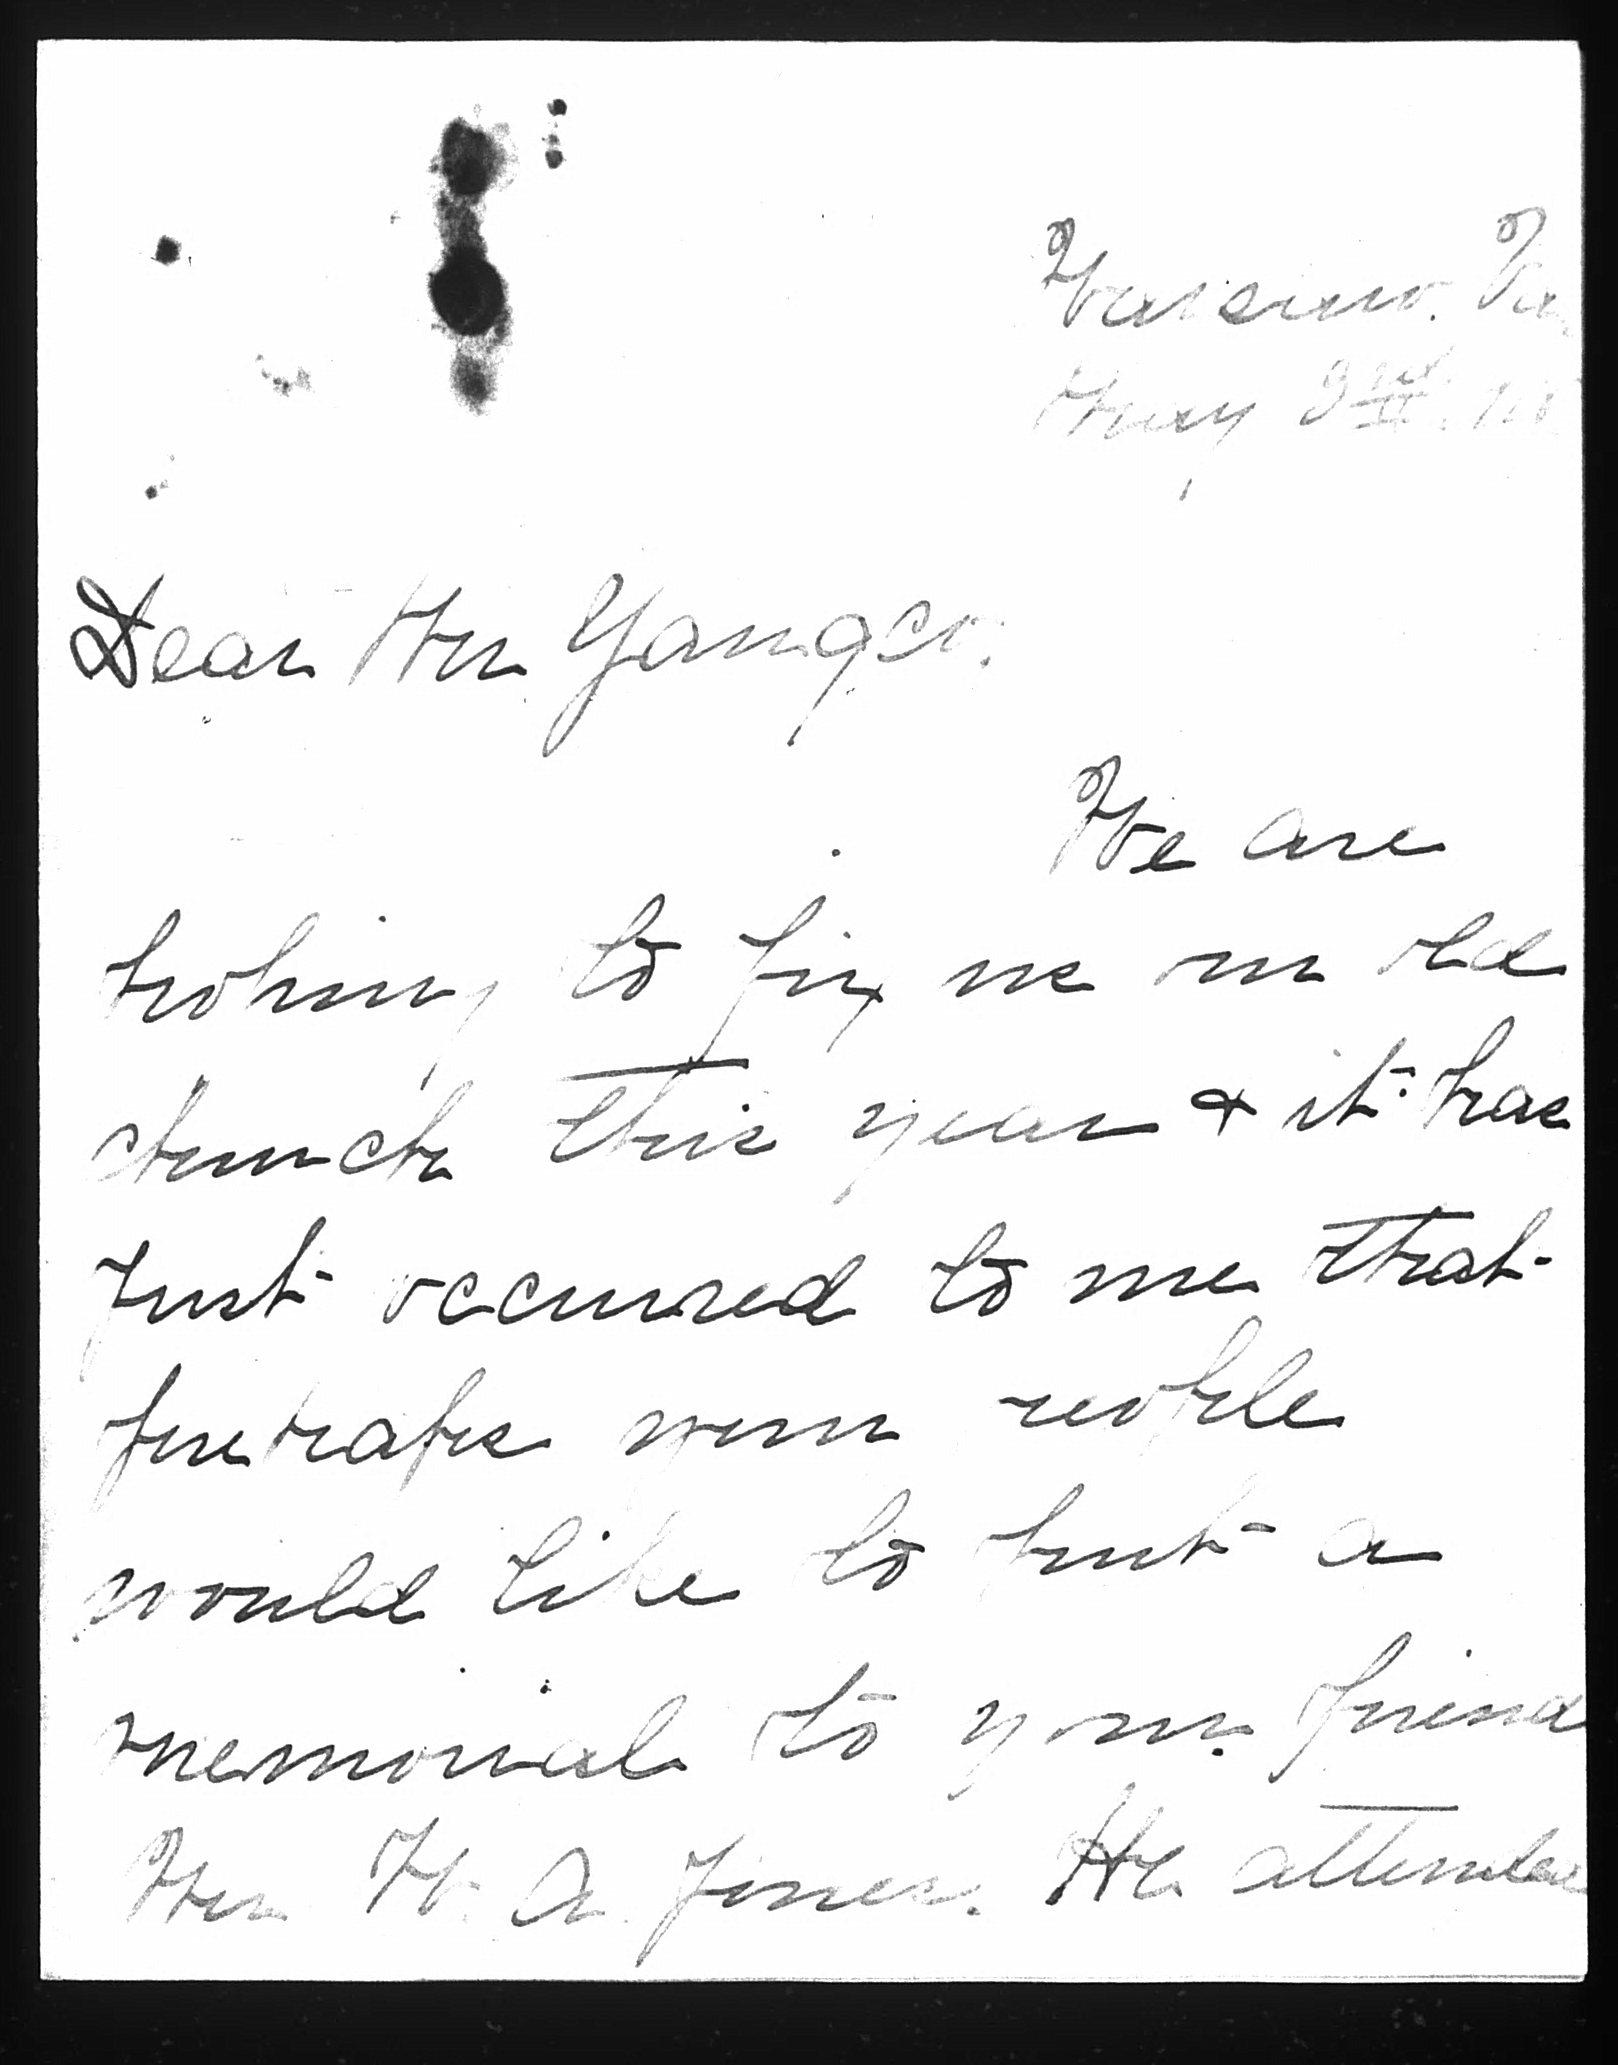 Warsaw. Va
May 3rd
Dear Mr Yangco.
We are
hoping to fix up our old
church this year & it has
just occured to me that
perhaps your people
would like to put a
memorial to your friend
Mr W. A. Jones. He attended